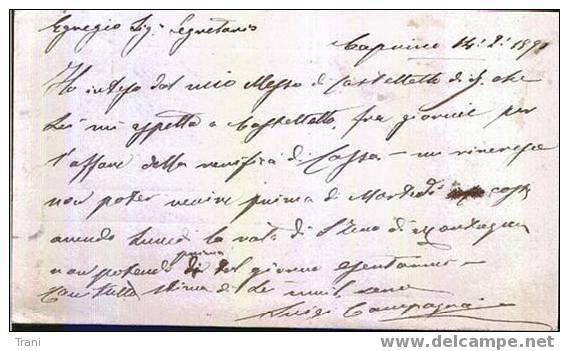 Egregio Sig. Segretario
Caprino 14. 2. 1891
Ho inteso dal mio Messo di Castelletto di S. che
Lei mi aspetta a Castelletto, fra giorni per
l'affare della verifica di Cassa - mi rincresce
non poter venire prima di Martedì
avendo Lunedì la
non potendo prima di tal giorno
Con tutta stima di Lei
Luigi Campagnai
Trani
www.delcampe.net